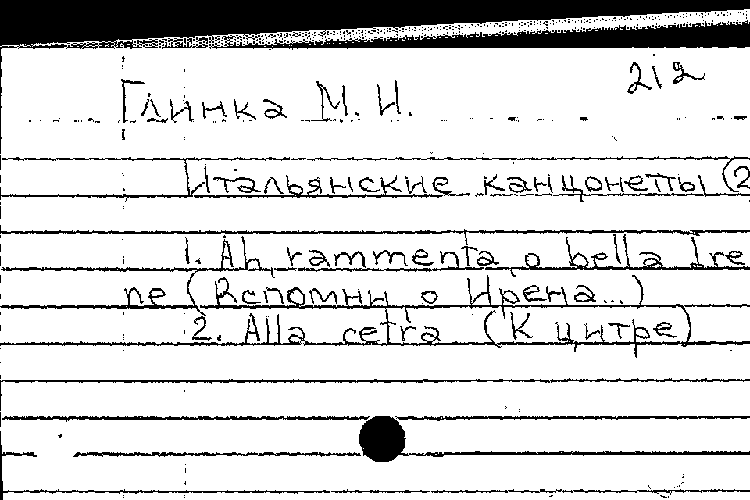 212
Глинка М. И.
Итальянские канцонетты (2
1. Ah, rammenta, o bella Ire
ne (Вспомни, о Ирена...)
2. Alla cetra (К цитре)